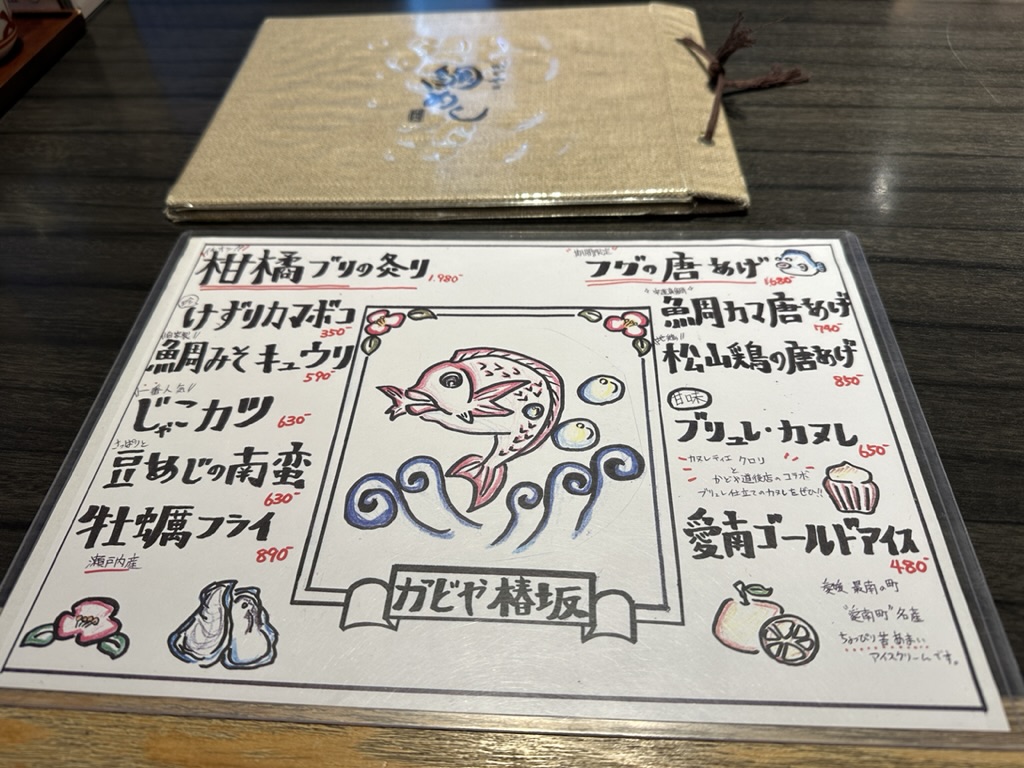 鯛めし
柑橘ブリの炙り
1.980-
けずりカマボコ
350-
自家製!!
鯛みそキュウリ
590-
一番人気!!
じゃこカツ
630-
さっぱりと
豆めじの南蛮
630-
牡蠣フライ
瀬戸内産
890-
フグの唐あげ
1.680-
鯛カマ唐あげ
740-
松山鶏の唐あげ
850-
甘味
ブリュレ・カヌレ
650-
カヌレティエ クロリ
と
かどや道後店のコラボ
ブリュレ仕立てのカヌレをぜひ!!
愛南ゴールドアイス
480-
愛媛 最南の町
"愛南町"名産
ちょっぴり苦あまい
アイスクリームです。
かどや椿坂